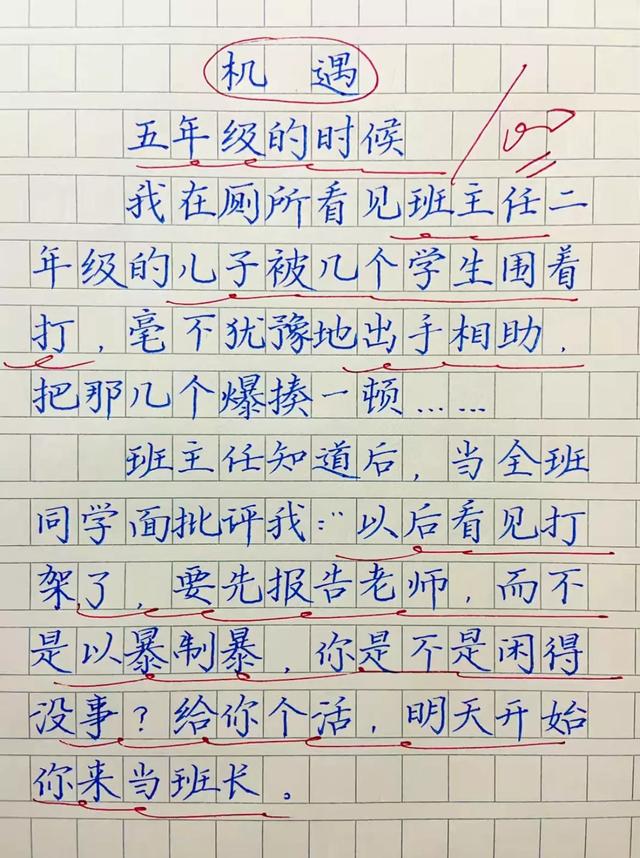 机遇
五年级的时候
我在厕所看见班主任二
年级的儿子被几个学生围着
打，毫不犹豫地出手相助，
把那几个爆揍一顿……
班主任知道后，当全班
同学面批评我：“以后看见打
架了，要先报告老师，而不
是以暴制暴，你是不是闲得
没事？给你个活，明天开始
你来当班长。